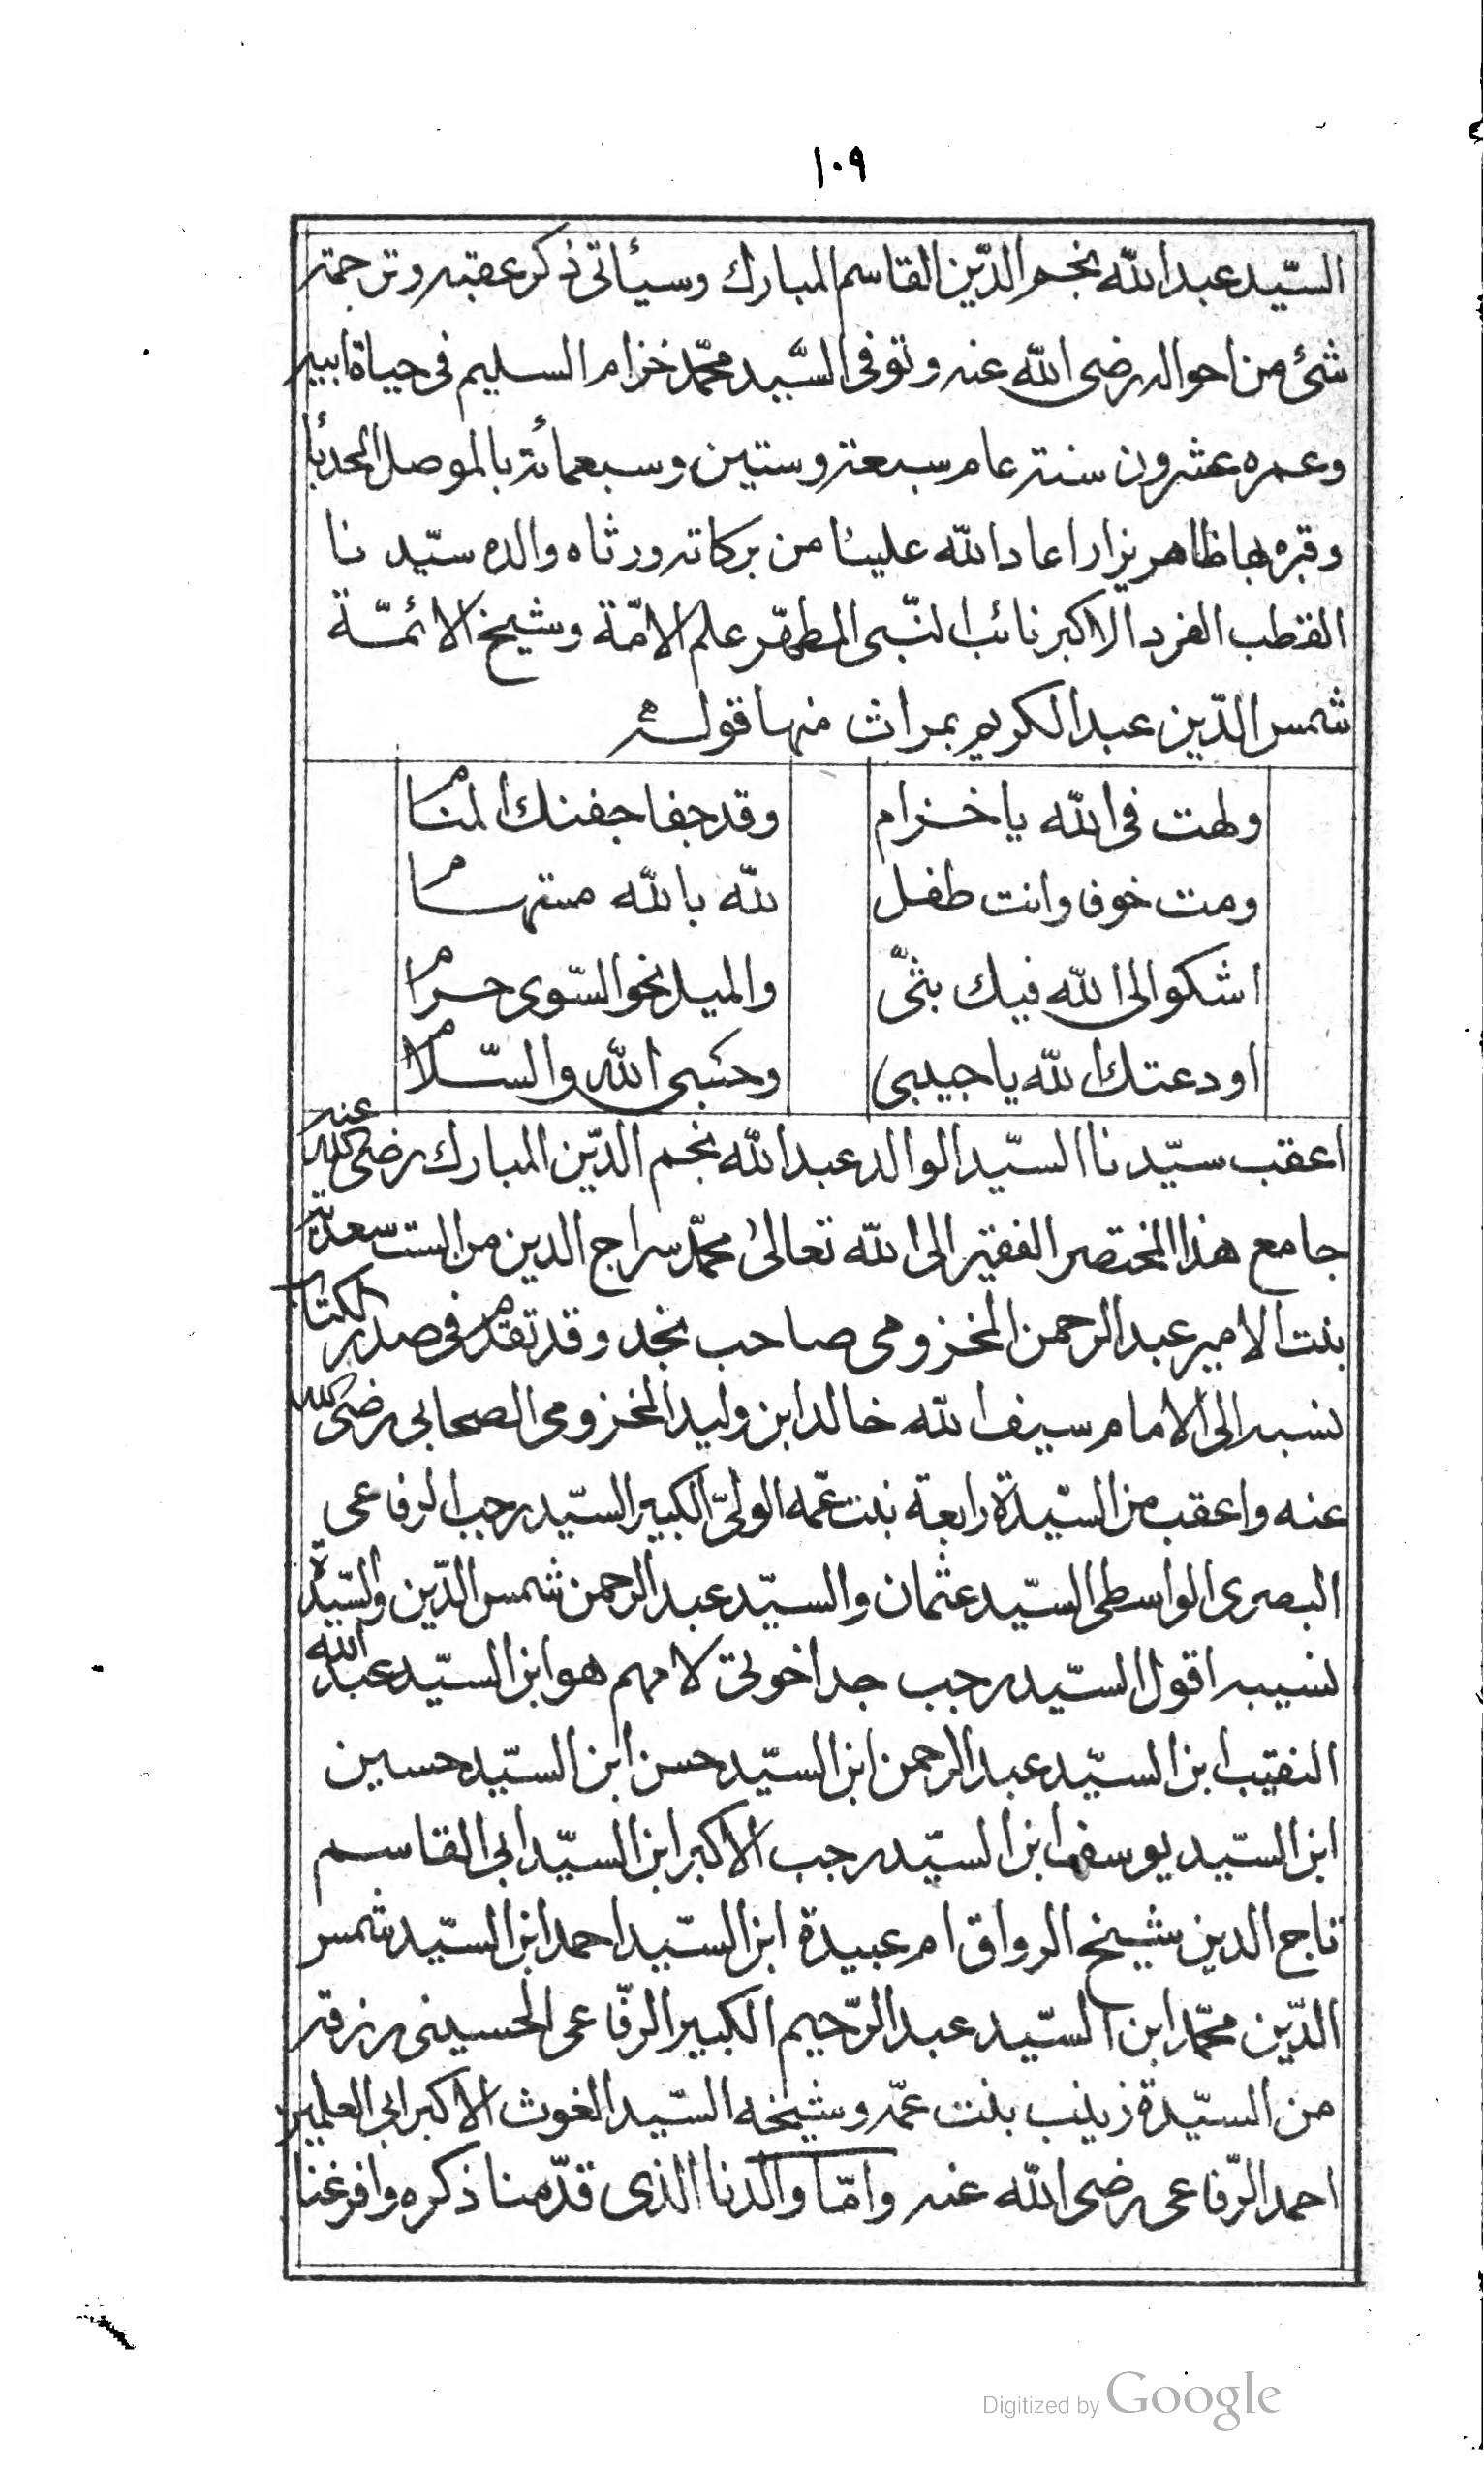 ١٠٩
السّيد عبد الله نجم الدّين القاسم المبارك وسيأتى ذكر عقبه وترجمته
شئ من احواله رضى الله عنه وتوفى السّيد محمّد خزام السليم فى حياة ابيه
وعمره عشرون سنة عام سبعة وستين وسبعمائة بالموصل الحدبا
وقبره بها ظاهر يزار اعاد الله علينا من بركاته ورثاه والده سيّدنا
القطب الفرد الاكبر نائب النّبى المطهّر علم الامّة وشيخ الائمّة
شمس الدّين عبد الكريم بمراث منها قوله
ولهت فى الله يا خزام وقد جفا جفنك المنام
ومت خوفا وانت طفل لله بالله مستهام
اشكو الى الله فيك بثّى والميل نحو السّوى حرام
اودعتك الله يا حبيبى وحسبى الله والسّلام
اعقب سيّدنا السّيد الوالد عبد الله نجم الدّين المبارك رضى الله عنه
جامع هذا المختصر الفقير الى الله تعالى محمّد سراج الدين من الست سعدية
بنت الامير عبد الرحمن المخزومى صاحب نجد وقد تقدم فى صدر الكتاب
نسبه الى الامام سيف الله خالد ابن وليد المخزومى الصحابى رضى الله
عنه واعقب من السّيدة رابعة بنت عمّه الولىّ الكبير السّيد رجب الرفاعى
البصرى الواسطى السّيد عثمان والسيّد عبد الرحمن شمس الدّين والسّيّدة
نسيبه اقول السّيد رجب جد اخوتى لامهم هو ابن السيّد عبد الله
النقيب ابن السيّد عبد الرحمن ابن السيّد حسن ابن السيّد حسين
ابن السيّد يوسف ابن السيّد رجب الاكبر ابن السيّد ابى القاسم
تاج الدين شيخ الرواق ام عبيدة ابن السيّد احمد ابن السيّد شمس
الدّين محمّد ابن السّيد عبد الرّحيم الكبير الرّفاعى الحسينى رزقه
من السيّدة زينب بنت عمّه وشيخه السيّد الغوث الاكبر ابى العلمين
احمد الرّفاعى رضى الله عنه وامّا والدنا الذى قدّمنا ذكره وافرغنا
Digitized by Google